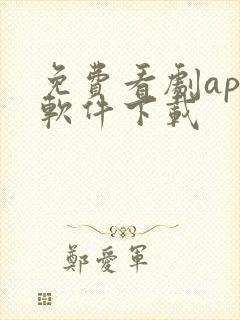 免費看劇ap
軟件下載
鄭愛軍